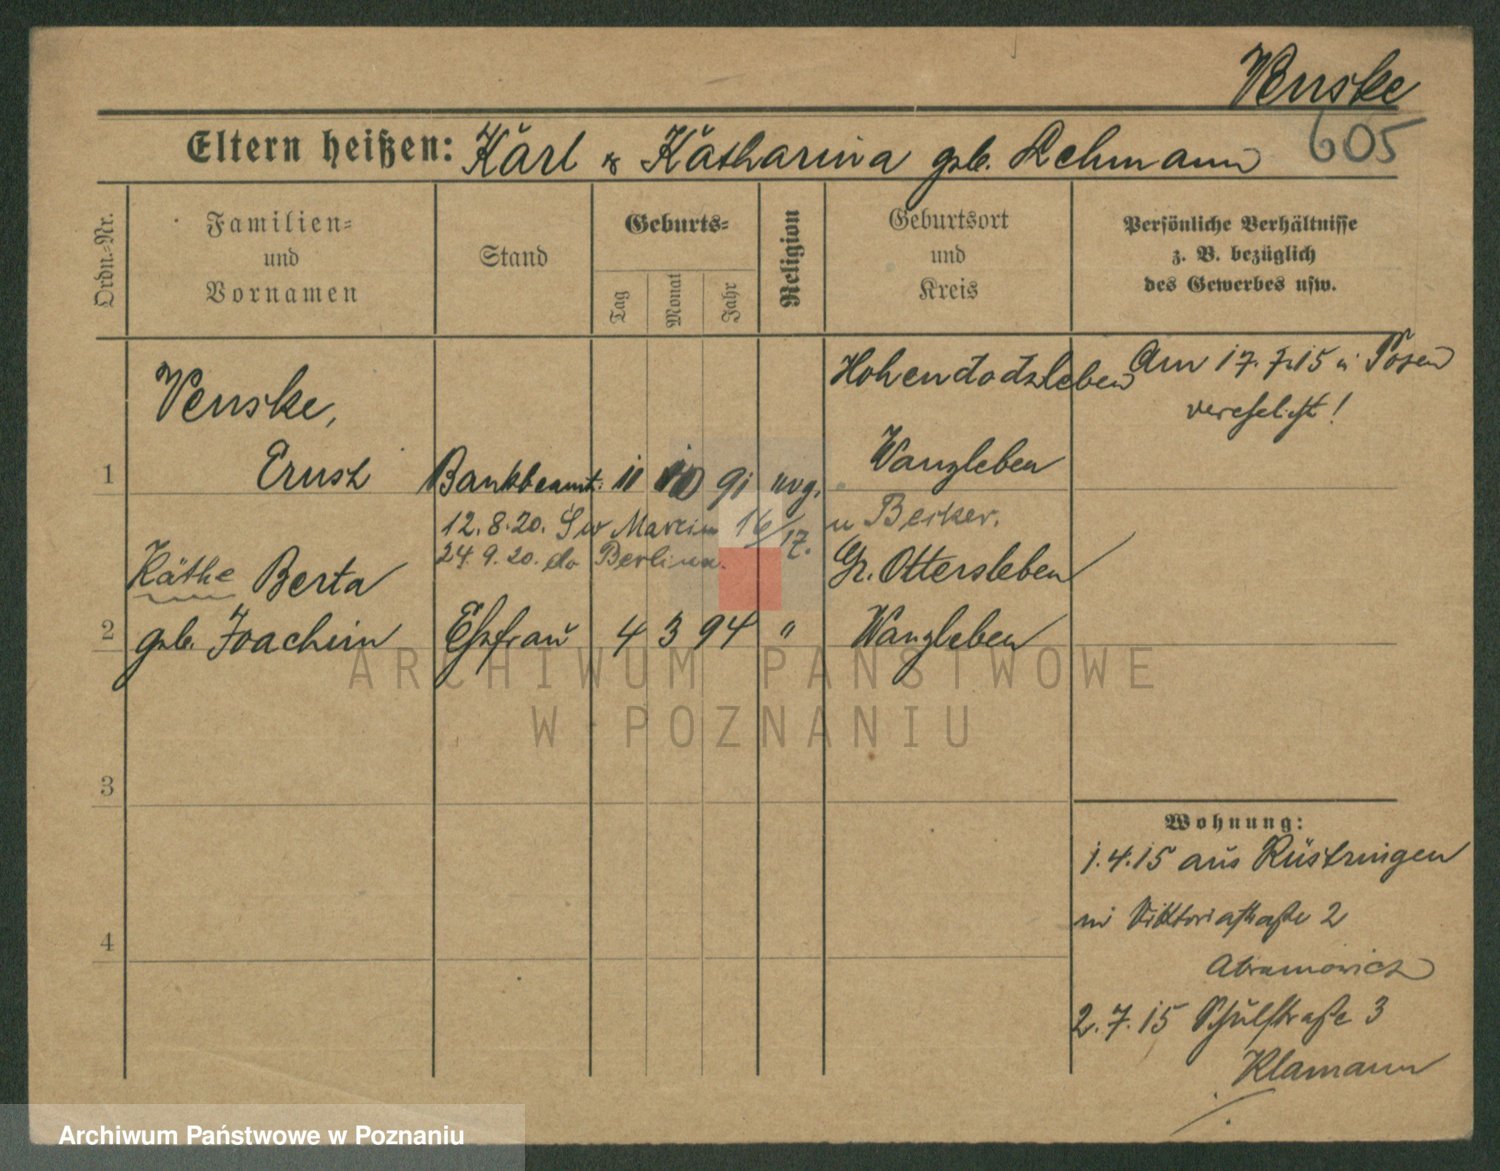 Venske
605
Eltern heißen: Karl & Katharina geb. Lehmann
Ordn.-Nr.
Familien-
und
Vornamen
Stand
Geburts-
Tag
Monat
Jahr
Religion
Geburtsort
und
Kreis
Persönliche Verhältnisse
z. B. bezüglich
des Gewerbes usw.
1
Venske,
Ernst
Bankbeamt.
11 10 91
evg.
Hohendodeleben
Wanzleben
Am 17.7.15 in Posen
verehelicht!
12.8.20. Sw Marcin 16/17. u Becker.
24.9.20. do Berlin
2
Käthe Berta
geb. Joachim
Ehefrau
4 3 94
"
Gr. Ottersleben
Wanzleben
3
4
Wohnung:
1.4.15 aus Rüstringen
Viktoriastraße 2
Abramowicz
2.7.15 Schulstraße 3
Klamann
ARCHIWUM PAŃSTWOWE
W POZNANIU
Archiwum Państwowe w Poznaniu